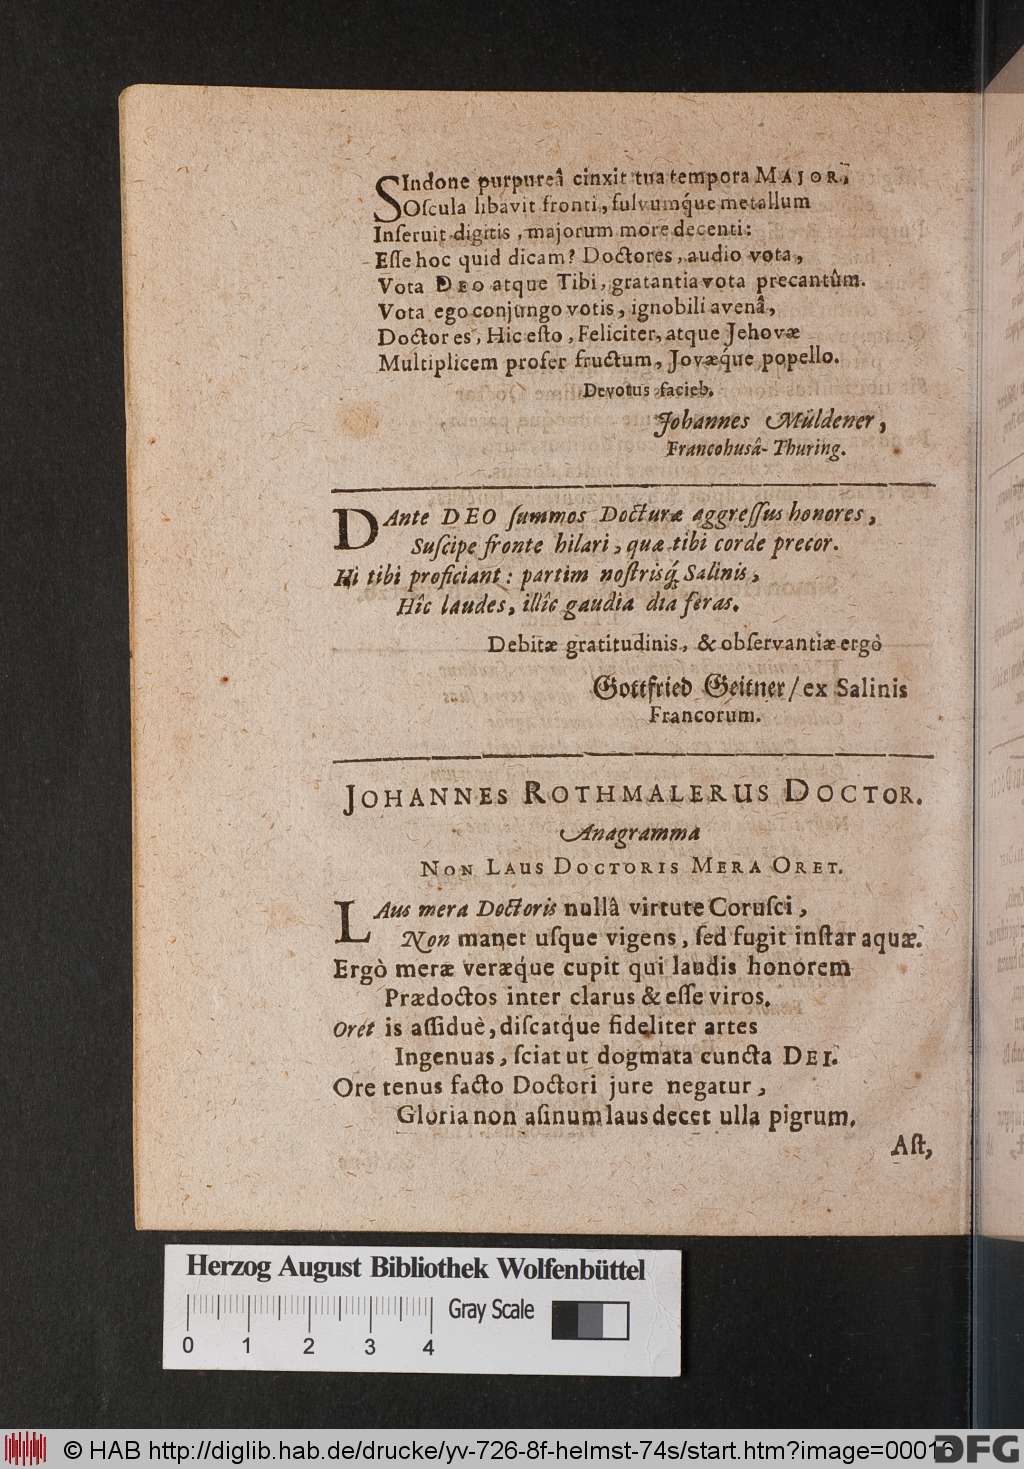 SIndone purpureâ cinxit tua tempora MAJOR,
OScula libavit fronti, fulvumq́ue metallum
Inſeruit digitis, majorum more decenti:
Eſſe hoc quid dicam? Doctores, audio vota,
Vota DEO atque Tibi, gratantia vota precantûm.
Vota ego conjungo votis, ignobili avenâ,
Doctor es, Hic eſto, Feliciter, atque Jehovæ
Multiplicem profer fructum, Jovæq́ue popello.
Devotus facieb.
Johannes Müldener,
Francohusâ-Thuring.
DAnte DEO ſummos Docturæ aggreſſus honores,
Suſcipe fronte hilari, quæ tibi corde precor.
Hi tibi proficiant: partim noſtrisq́; Salinis,
Hîc laudes, illîc gaudia dia feras.
Debitæ gratitudinis, & obſervantiæ ergò
Gottfried Geitner/ ex Salinis
Francorum.
JOHANNES ROTHMALERUS DOCTOR.
Anagramma
NON LAUS DOCTORIS MERA ORET.
LAus mera Doctoris nullâ virtute Coruſci,
Non manet uſque vigens, ſed fugit inſtar aquæ.
Ergò meræ veræq́ue cupit qui laudis honorem
Prædoctos inter clarus & eſſe viros.
Oret is aſſiduè, diſcatq́ue fideliter artes
Ingenuas, ſciat ut dogmata cuncta DEI.
Ore tenus facto Doctori jure negatur,
Gloria non aſinum laus decet ulla pigrum.
Aſt,
Herzog August Bibliothek Wolfenbüttel
Gray Scale
0 1 2 3 4
© HAB http://diglib.hab.de/drucke/yv-726-8f-helmst-74s/start.htm?image=00016
DFG